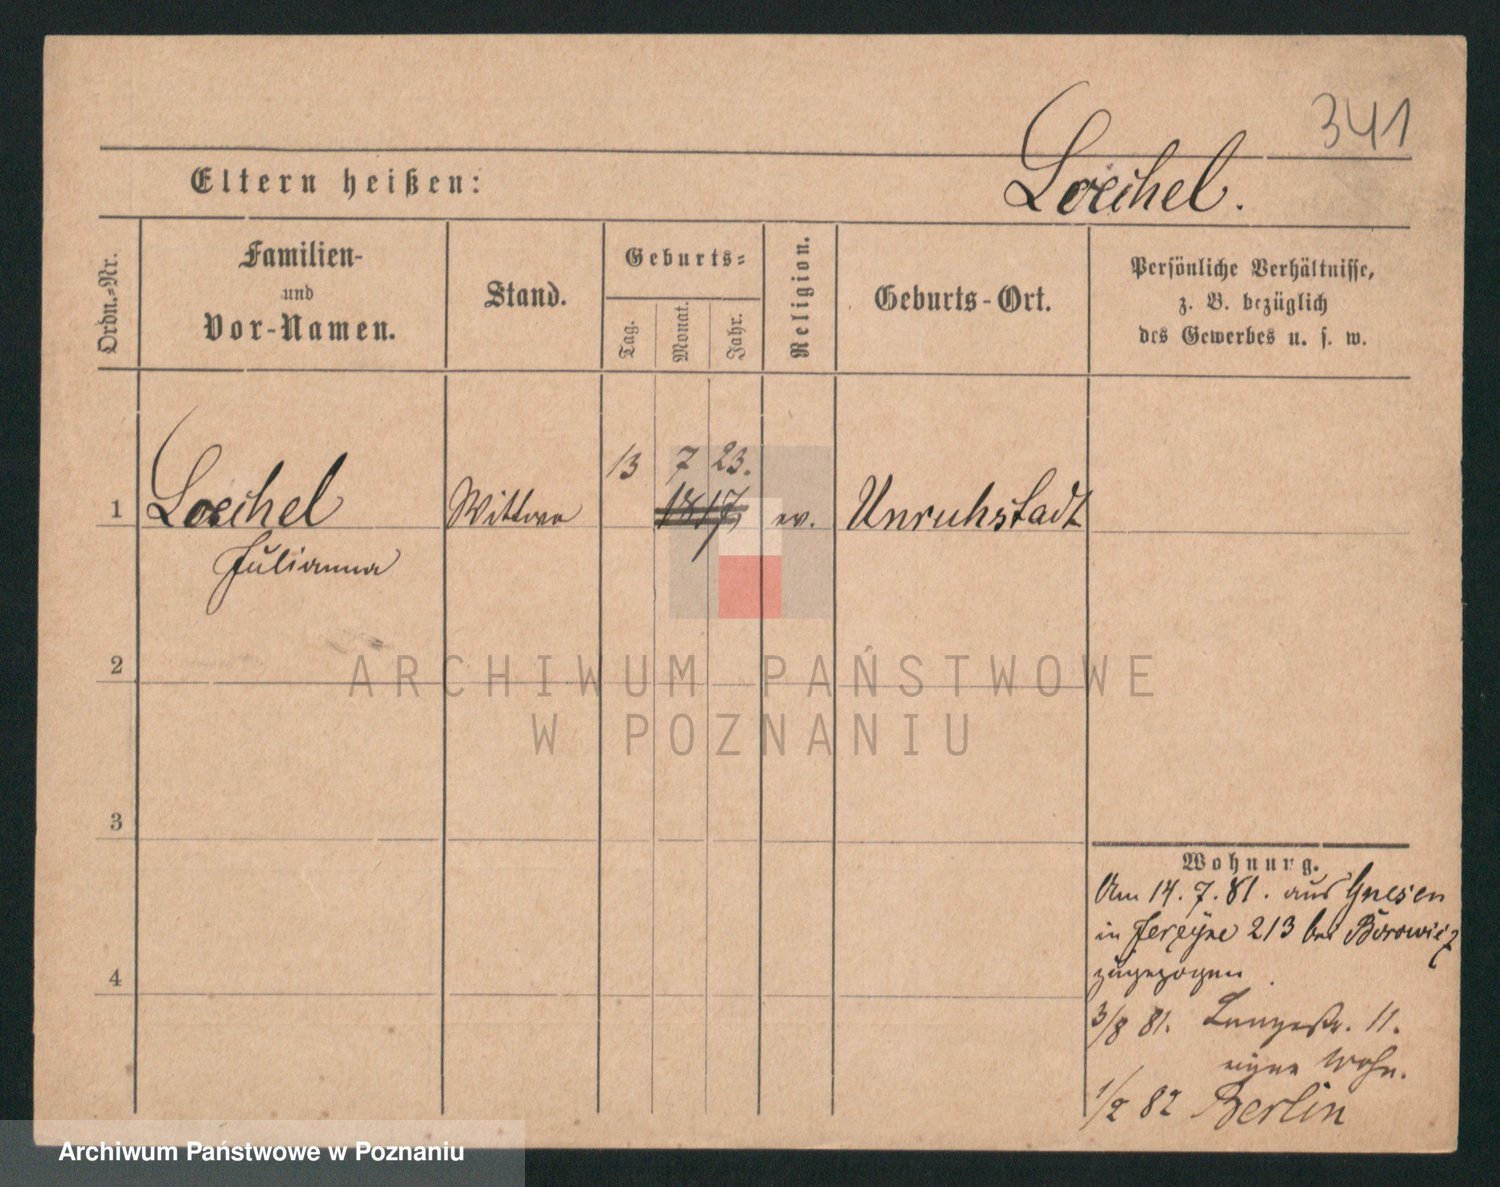 341
Loechel.
Eltern heißen:
Ordn.-Nr.
Familien-
und
Vor-Namen.
Stand.
Geburts-
Tag.
Monat.
Jahr.
Religion.
Geburts-Ort.
Persönliche Verhältnisse,
z. B. bezüglich
des Gewerbes u. s. w.
13 7 23.
1 Loechel Wittwe 1817 ev. Unruhstadt
Julianna
2
3
4
Wohnung.
Am 14. 7. 81. aus Gnesen
in Jerzyce 213 bei Borowicz
zugezogen
3/8 81. Langestr. 11.
eigne Wohn.
1/2 82 Berlin
ARCHIWUM PAŃSTWOWE
W POZNANIU
Archiwum Państwowe w Poznaniu